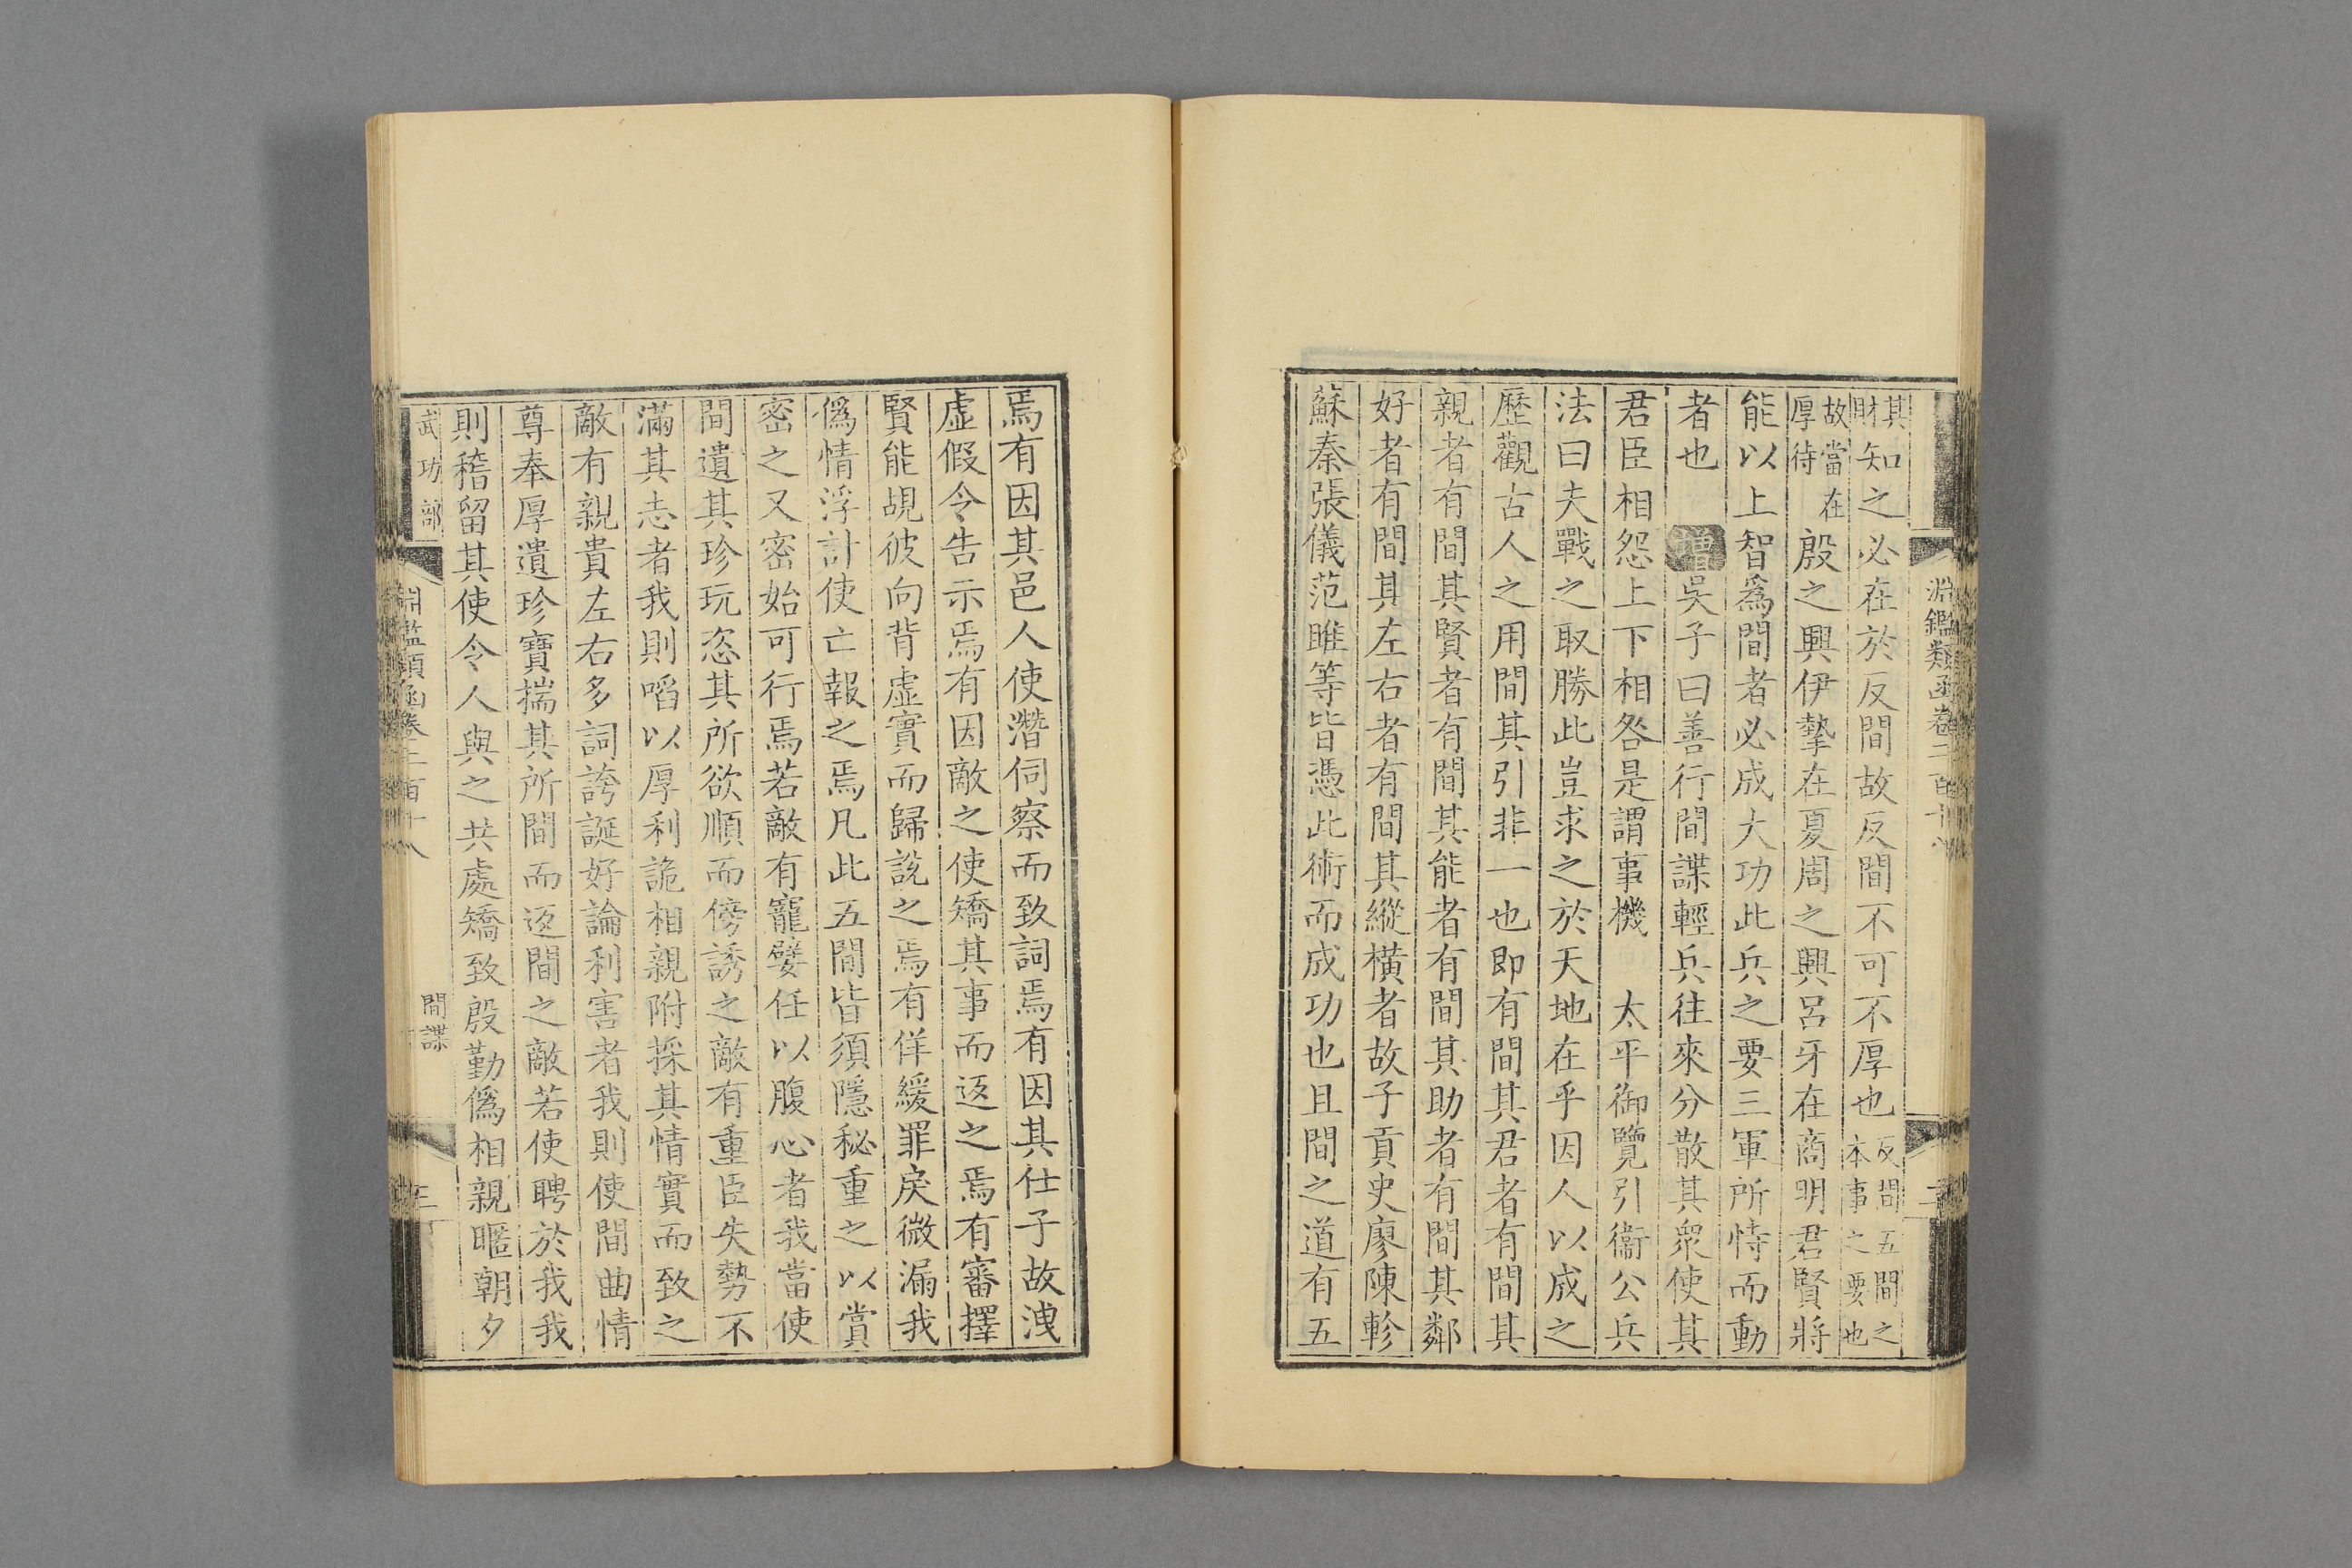 淵鑑類函卷二百十八
二
其財知之必在於反間故反間不可不厚也反間五間之本事之要也
故當在厚待殷之興伊摯在夏周之興呂牙在商明君賢將
能以上智為間者必成大功此兵之要三軍所恃而動
者也 增吳子曰善行間諜輕兵往來分散其眾使其
君臣相怨上下相咎是謂事機 太平御覽引衛公兵
法曰夫戰之取勝此豈求之於天地在乎因人以成之
歷觀古人之用間其引非一也即有間其君者有間其
親者有間其賢者有間其能者有間其助者有間其鄰
好者有間其左右者有間其縱橫者故子貢史廖陳軫
蘇秦張儀范雎等皆憑此術而成功也且間之道有五
焉有因其邑人使潛伺察而致詞焉有因其仕子故洩
虛假令告示焉有因敵之使矯其事而返之焉有審擇
賢能覘彼向背虛實而歸說之焉有佯緩罪戾微漏我
偽情浮計使亡報之焉凡此五間皆須隱秘重之以賞
密之又密始可行焉若敵有寵嬖任以腹心者我當使
間遺其珍玩恣其所欲順而傍誘之敵有重臣失勢不
滿其志者我則啗以厚利詭相親附採其情實而致之
敵有親貴左右多詞誇誕好論利害者我則使間曲情
尊奉厚遺珍寶揣其所間而返間之敵若使聘於我我
則稽留其使令人與之共處矯致殷勤偽相親暱朝夕
武功部
淵鑑類函卷二百十八
間諜
三